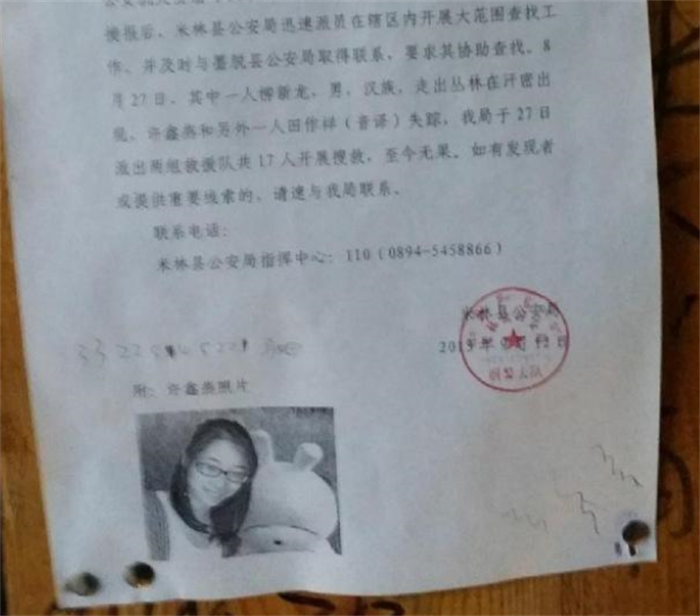 援报后，米林县公安局迅速派员在辖区内开展大范围查找工
作，并及时与墨脱县公安局取得联系，要求其协助查找。8
月27日，其中一人柳新龙，男，汉族，走出丛林在汗密出
现，许鑫燕和另外一人田作样（音译）失踪，我局于27日
派出两组救援队共17人开展搜救，至今无果。如有发现者
或提供重要线索的，请速与我局联系。
联系电话：
米林县公安局指挥中心：110（0894-5458866）
米林县公安局
2013年 月 日
刑警大队
附：许鑫燕照片